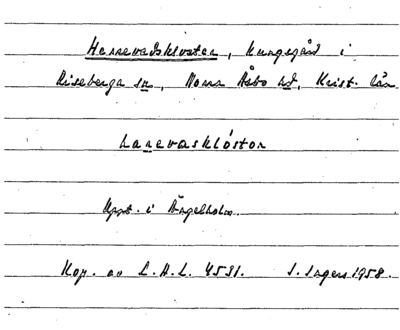 Herrevadskloster, Kungsgård i
Riseberga sn, Norra Åsbo hd, Krist. län
Lanevasklóston
Uppt. i Ängelholm.
Kop. av L.A.L. 4531. S. Ingers 1958.